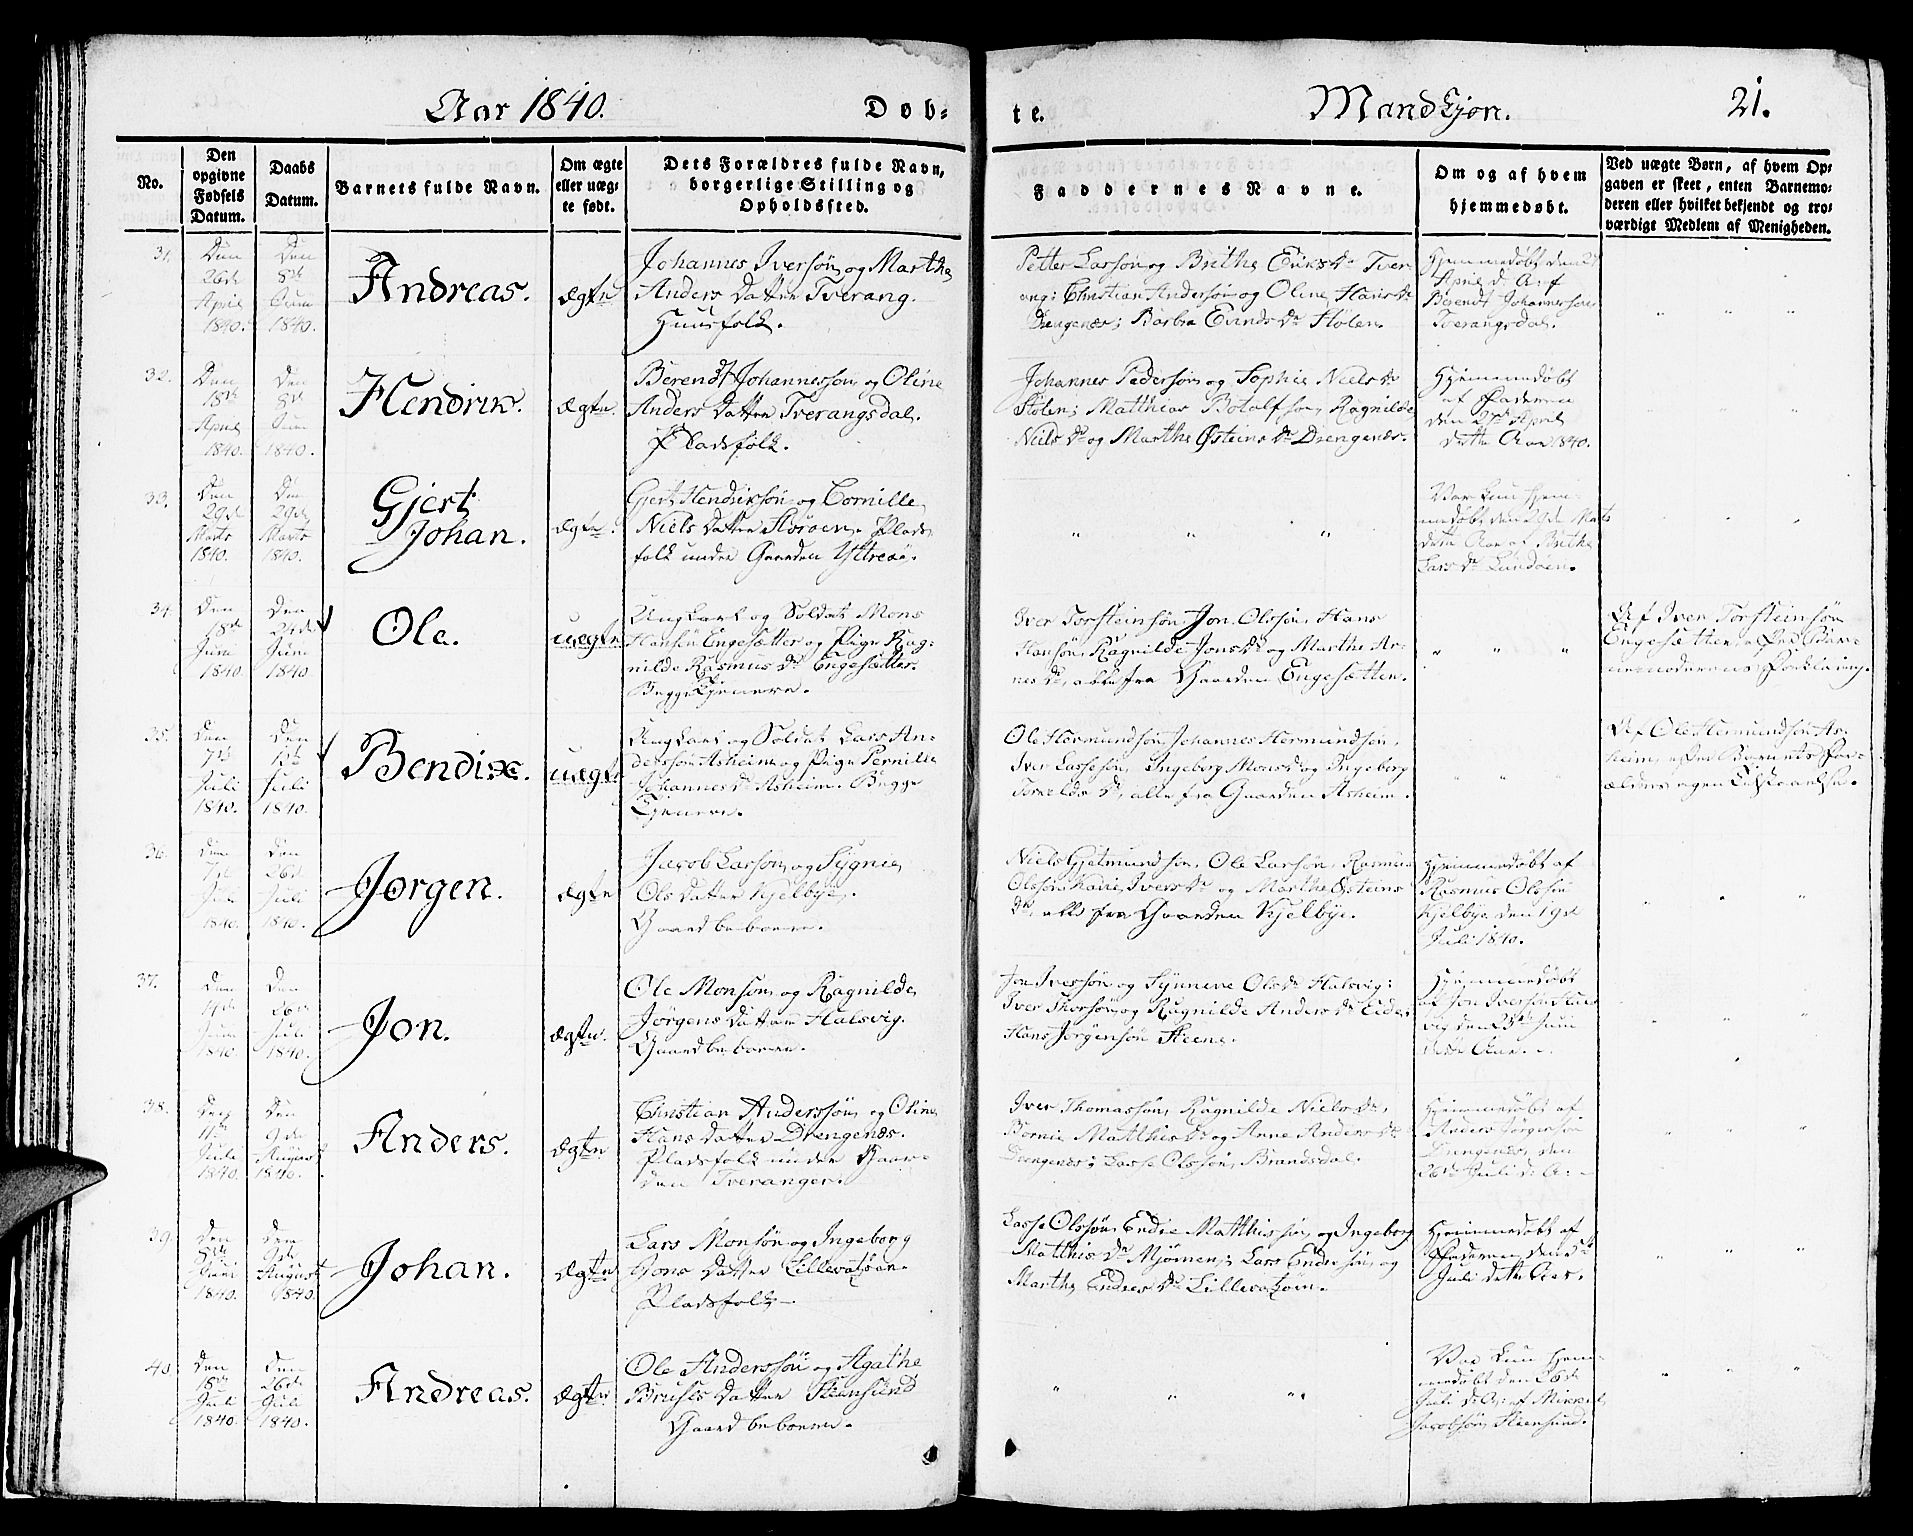 Aar 1840. Døb= te. Mandkjøn. 21.
No.
Den
opgivne
Fødsels
Datum.
Daabs
Datum.
Barnets fulde Navn.
Om ægte
eller uæg-
te født.
Dets Forældres fulde Navn,
borgerlige Stilling og
Opholdssted.
Faddernes Navne.
Om og af hvem
hjemmedøbt.
Ved uægte Børn, af hvem Op-
gaven er skeet, enten Barnemo-
deren eller hvilket bekjendt og tro-
værdigt Medlem af Menigheden.
31.
Den
26de
April
1840.
Den
8de
Juni
1840.
Andreas.
Ægte
Johannes Iversøn og Marthe
Anders Datter Tverang.
Huusfolk.
Petter Lassøn og Brithe Eriks Dr Tver
ang; Christian Andersøn og Oline Hans Dr
Drengenæs; Barbra Evinds Dr Stølen.
Hjemmedøbt den
April d. A. af
Berendt Johannessøn
Tverangsdal.
32.
Den
18de
April
1840.
Den
8de
Juni
1840.
Hendrik.
Ægte.
Berendt Johannessøn og Oline
Anders Datter Tverangsdal.
Pladsfolk.
Johannes Pedersøn og Sophie Niels Dr
Stølen; Matthias Botolfsøn, Ragnilde
Niels Dr og Marthe Østeins Dr Drengenæs.
Hjemmedøbt
af Faderen
den 27de April
dette Aar 1840.
33.
Den
29de
Marts
1840.
Den
29de
Marts
1840.
Gjert
Johan.
Ægte.
Gjert Hendriksøn og Cornille
Niels Datter Storøen. Plads
folk under Gaarden Yttreøi.
Var kun hjem-
medøbt den 29de Marts
dette Aar af Brithe
Lars Dr Lundøen.
34.
Den
18de
Juni
1840.
Den
24de
Juni
1840.
Ole.
uægte
Ungkarl og Soldat Mons
Hansøn Engesætter og Pige Rag-
nilde Rasmus Dr Engesætter.
Begge Tjenere.
Iver Torsteinsøn, Jon Olssøn, Hans
Hansøn, Ragnilde Jons Dr og Marthe Ar-
nes Dr, alle fra Gaarden Engesætter.
Af Iver Torsteinsøn
Engesætter, efter Bar-
nemoderens Forklaring.
35.
Den
7de
Juli
1840.
Den
13de
Juli
1840.
Bendix.
uægte
Ungkarl og Soldat Lars An-
derssøn Asheim og Pige Pernille
Johannes Dr Asheim. Begge
Tjenere.
Ole Hermundsøn, Johannes Hermundsøn,
Iver Lassesøn, Ingeborg Mons Dr og Ingeborg
Torkelds Dr, alle fra Gaarden Asheim.
Af Ole Hermundsøn As-
heim, efter Barnets For-
ældres egen Tilstaaelse.
36.
Den
7de
Juli
1840.
Den
26de
Juli
1840.
Jørgen.
Ægte
Jacob Larsøn og Sygne
Ols Datter Kjelbye.
Gaardbeboere.
Niels Gjetmundsøn, Ole Larsøn, Rasmus
Olssøn, Kari Ivers Dr og Marthe Østeins
Dr, alle fra Gaarden Kjelbye.
Hjemmedøbt af
Rasmus Olssøn
Kjelbye den 19de
Juli 1840.
37.
Den
4de
Juni
1840
Den
26de
Juli
1840.
Jon.
Ægte.
Ole Monsøn og Ragnilde
Jørgens Datter Halsvig.
Gaardbeboere.
Jon Iversøn og Synneve Ols Dr Halsvig;
Iver Thorsøn og Ragnilde Anders Dr Eide;
Hans Jørgensøn Steene.
Hjemmedøbt
af Jon Iversøn Hals
vig den 23de Juni
dette Aar.
38.
Den
11te
Juli
1840.
Den
9de
August
1840.
Anders.
Ægte
Christian Anderssøn og Oline
Hans Datter Drengenæs.
Pladsfolk under Gaar-
den Tveranger.
Iver Thomassøn, Ragnilde Niels Dr,
Bornie Matthis Dr og Anne Anders Dr
Drengenæs; Lasse Olssøn Brandsdal.
Hjemmedøbt af
Anders Jørgensøn
Drengenæs, den
26de Juli d. A.
39.
Den
5te
Juni
1840.
Den
9de
August
1840.
Johan.
Ægte
Lars Monsøn og Ingeborg
Jons Datter Lillevatsøen.
Pladsfolk
Lasse Olssøn, Endre Matthissøn og Ingeborg
Matthis Dr Mjømen; Lars Endersøn og
Marthe Endres Dr
Hjemmedøbt af
Faderen den 5te
Juli dette Aar.
40.
Den
18de
Juli
1840.
Den
26de
Juli
1840.
Andreas.
Ægte
Ole Anderssøn og Agathe
Bruses Datter Steensund
Gaardbeboere.
Var kun hjem-
medøbt den 26de
Juli d. A. af Mikkel
Jacobsøn Steensund.